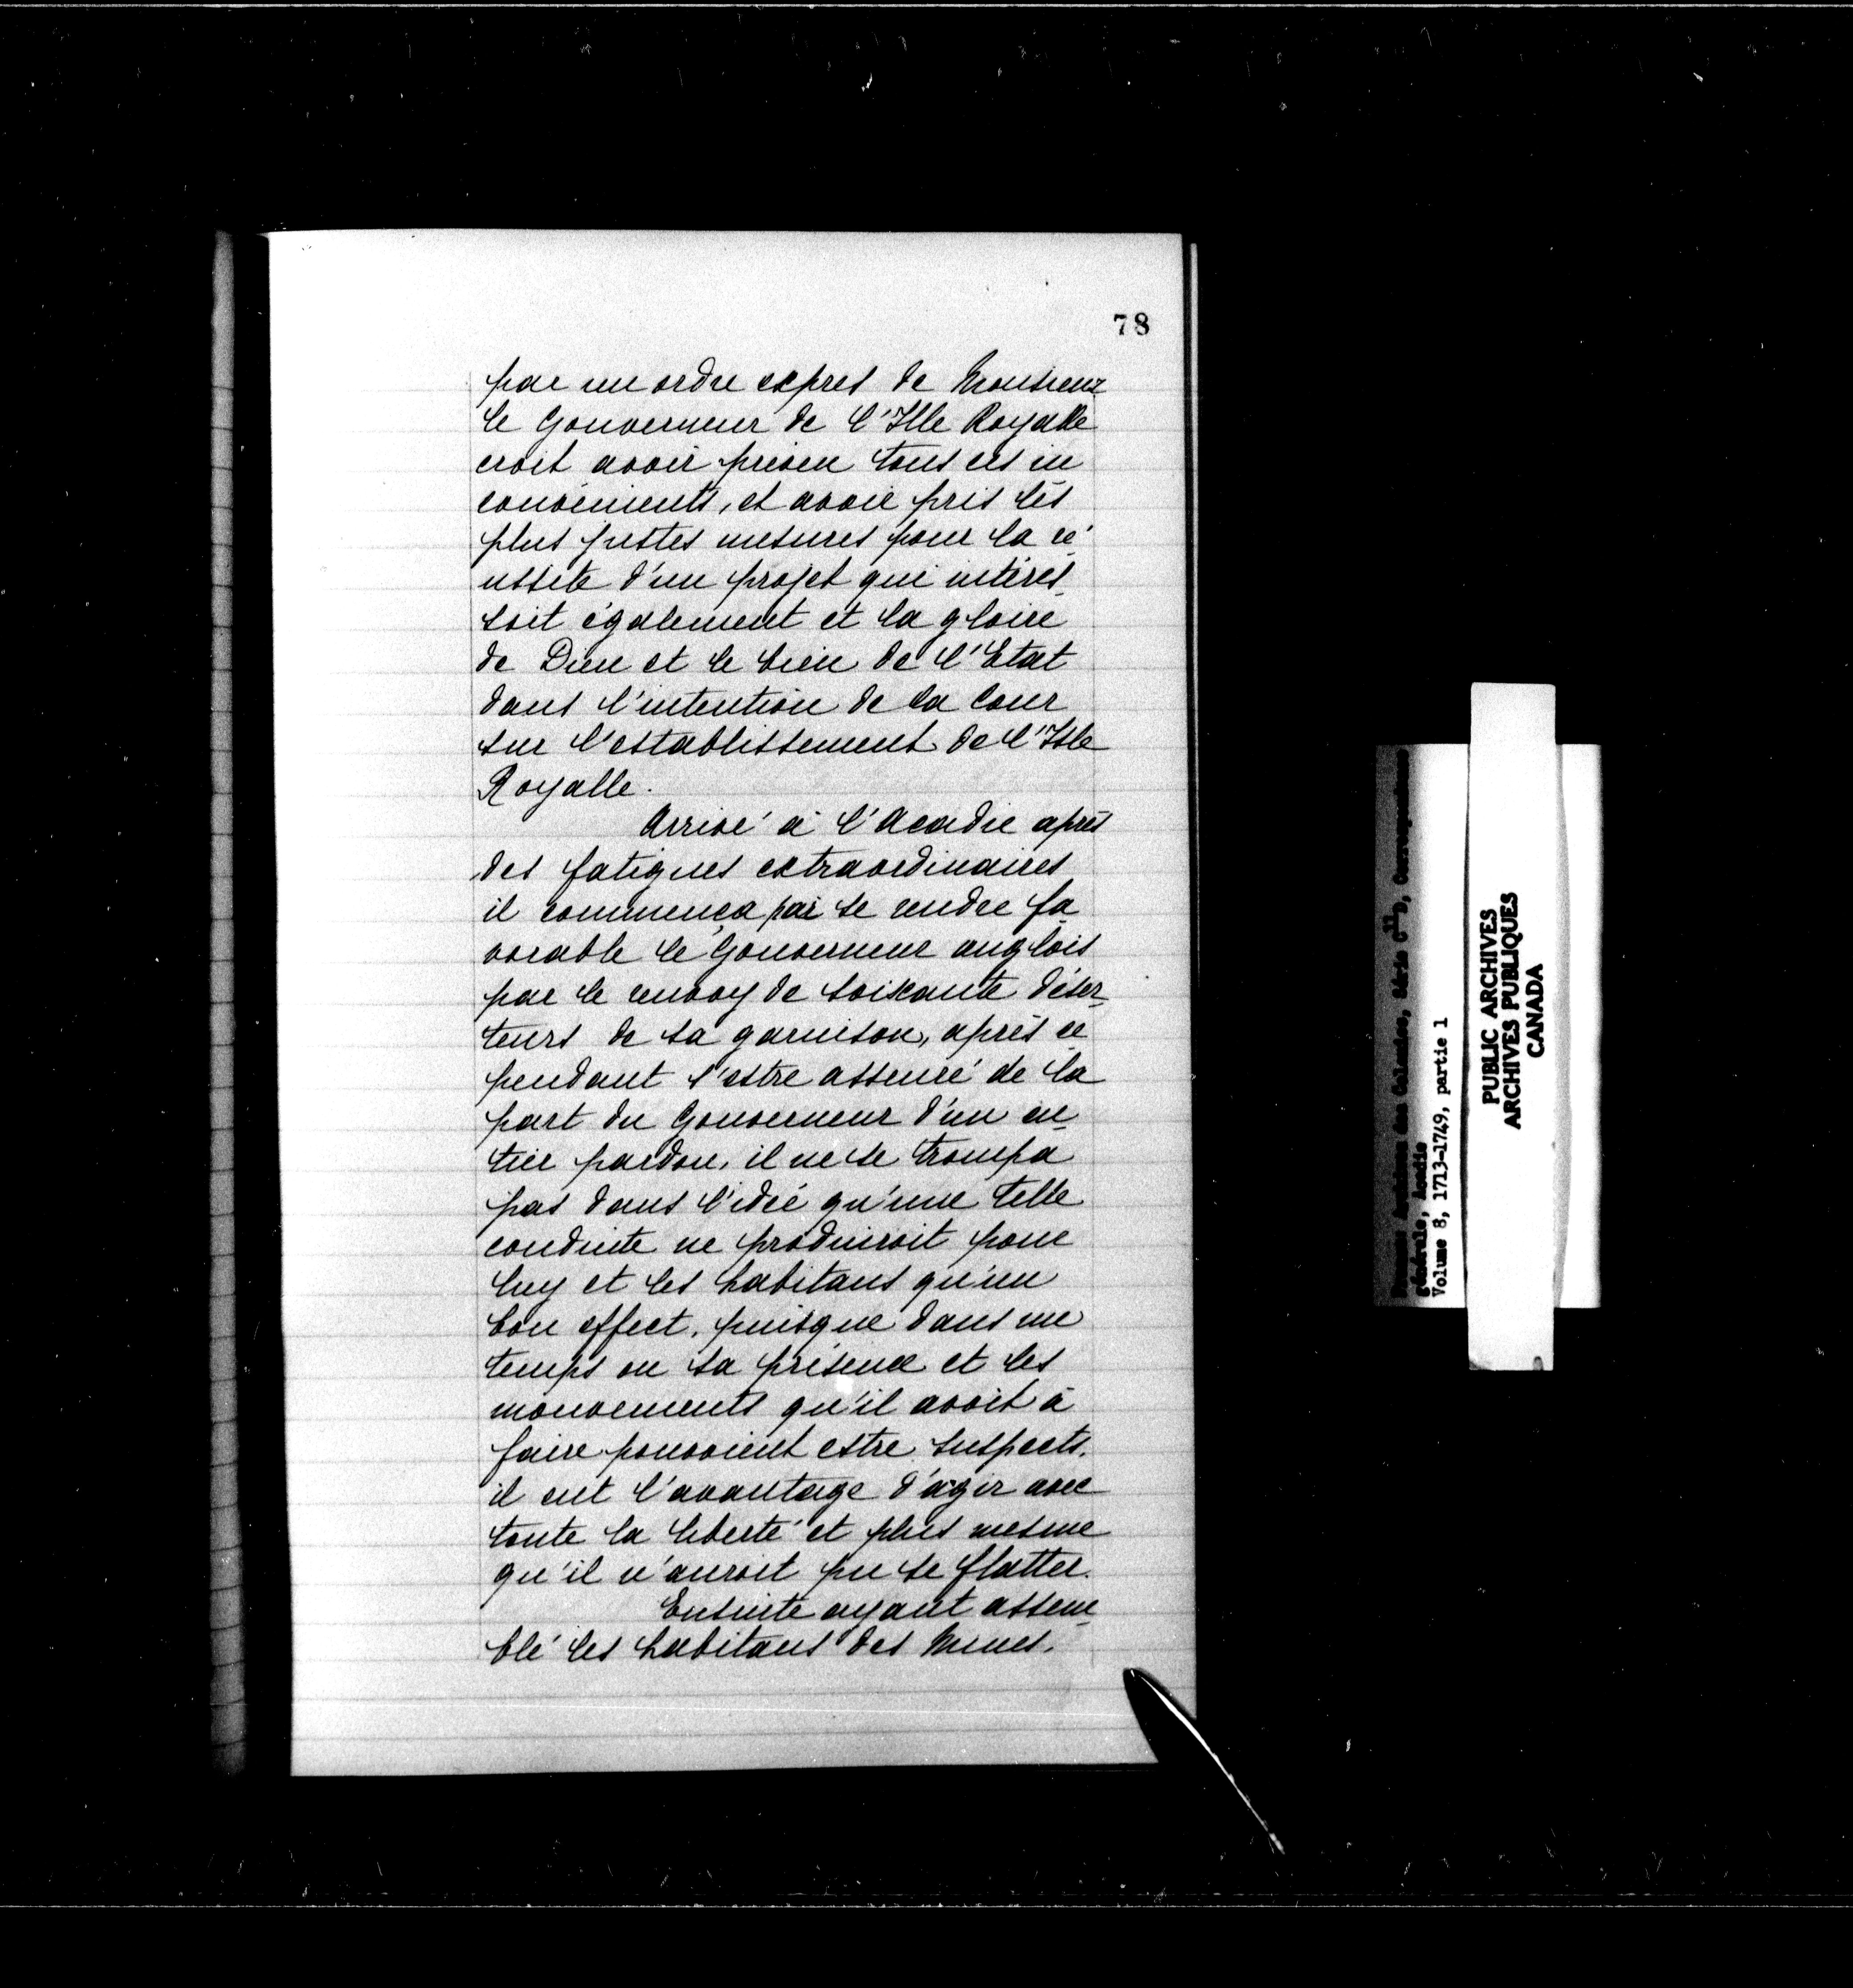 78
par un ordre exprès de Monsieur
le Gouverneur de l'Isle Royalle
croit avoir préveu tous ces in
convénients, et avoir pris les
plus justes mesures pour la ré
ussite d'un projet qui intéres
soit également et la gloire
de Dieu et le bien de l'Etat
dans l'intention de la Cour
sur l'establissement de l'Isle
Royalle.
Arrivé à l'Acadie après
des fatigues extraordinaires
il commença par se rendre fa
vorable le Gouverneur anglois
par le renvoy de soixante déser-
teurs de sa garnison, après ce
pendant s'estre asseuré de la
part du Gouverneur d'un en
tier pardon, il ne se trompa
pas dans l'idée qu'une telle
conduite ne produiroit pour
luy et les habitans qu'un
bon effect, puisque dans un
temps ou sa présence et les
mouvements qu'il avoit à
faire pouvoient estre suspects,
il eut l'avantage d'agir avec
toute la liberté et plus mesme
qu'il n'auroit pu se flatter.
Ensuite ayant assem
blé les habitans des Mines,
PUBLIC ARCHIVES
ARCHIVES PUBLIQUES
CANADA
Archives des Colonies, Série C11D, Correspondance
générale, Acadie
Volume 8, 1713-1749, partie 1